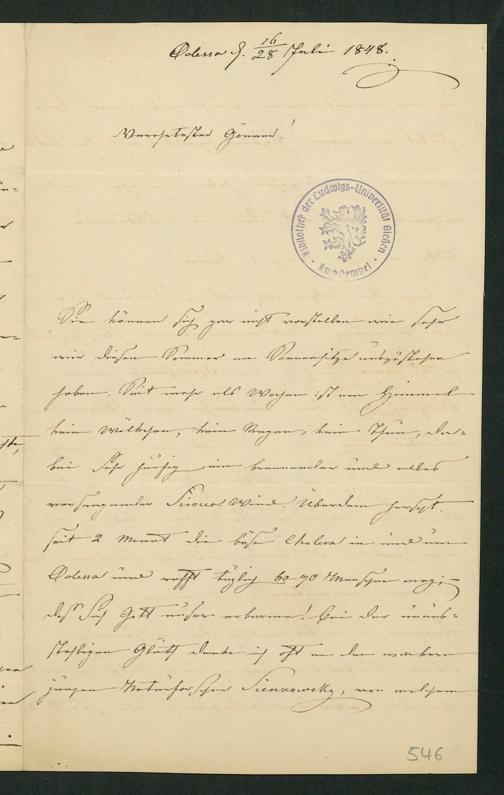 Odessa d. 16/28 Juli 1848.
Verehrtester Gönner!
Bibliothek der Ludwigs-Universität Gießen
Sie können sich gar nicht vorstellen wie sehr
wir diesen Sommer an Sonnenhitze auszustehen
haben. Seit mehr als Wochen ist am Himmel
kein Wölkchen, kein Regen, kein Thau, da-
bei sehr häufig ein brennender und alles
versengender Sirocco Wind. Überdem herrscht
seit 2 Monat die böse Cholera in und um
Odessa und rafft täglich 60-90 Menschen weg;
daß sich Gott unser erbarme! Bei der unaus-
stehlichen Gluth denke ich oft an den wackern
jungen Naturforscher Sienkowsky, von welchem
546